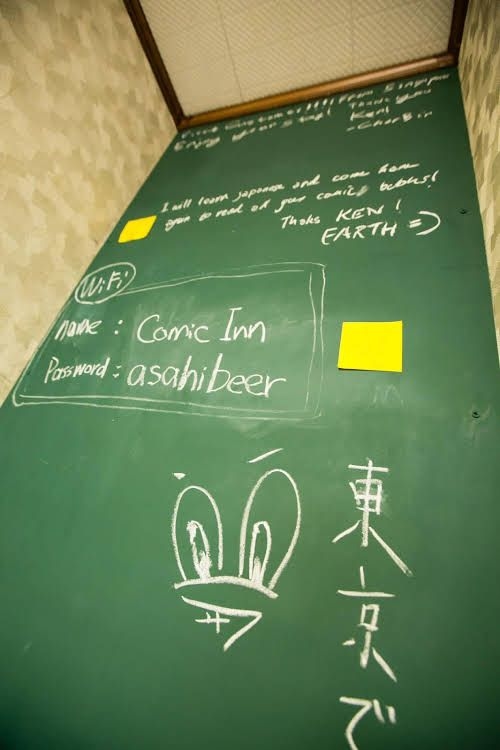 First Customer!!!! From Singapore
Enjoy your stay! Thank you
Ken!
I will learn japanese and come here
again to read all your comic bubbles!
Thnks KEN!
EARTH =)
WiFi
name : Comic Inn
Password : asahibeer
東京で